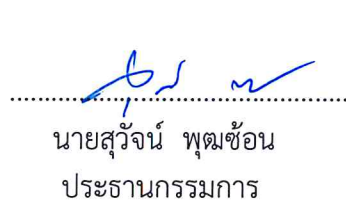 นายสุวัจน์ พุฒซ้อน
ประธานกรรมการ